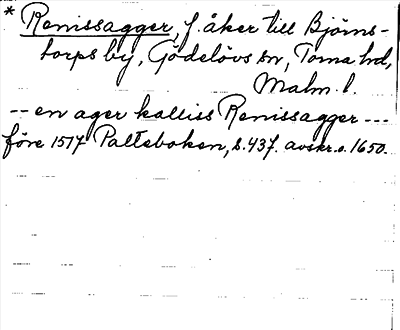 * Renissagger, f. åker till Björns-
torps by, Gödelövs sn, Torna hd,
Malm. l.
-- en ager kalliss Renissagger ---
före 1517 Palteboken, s. 437. avskr. o. 1650.